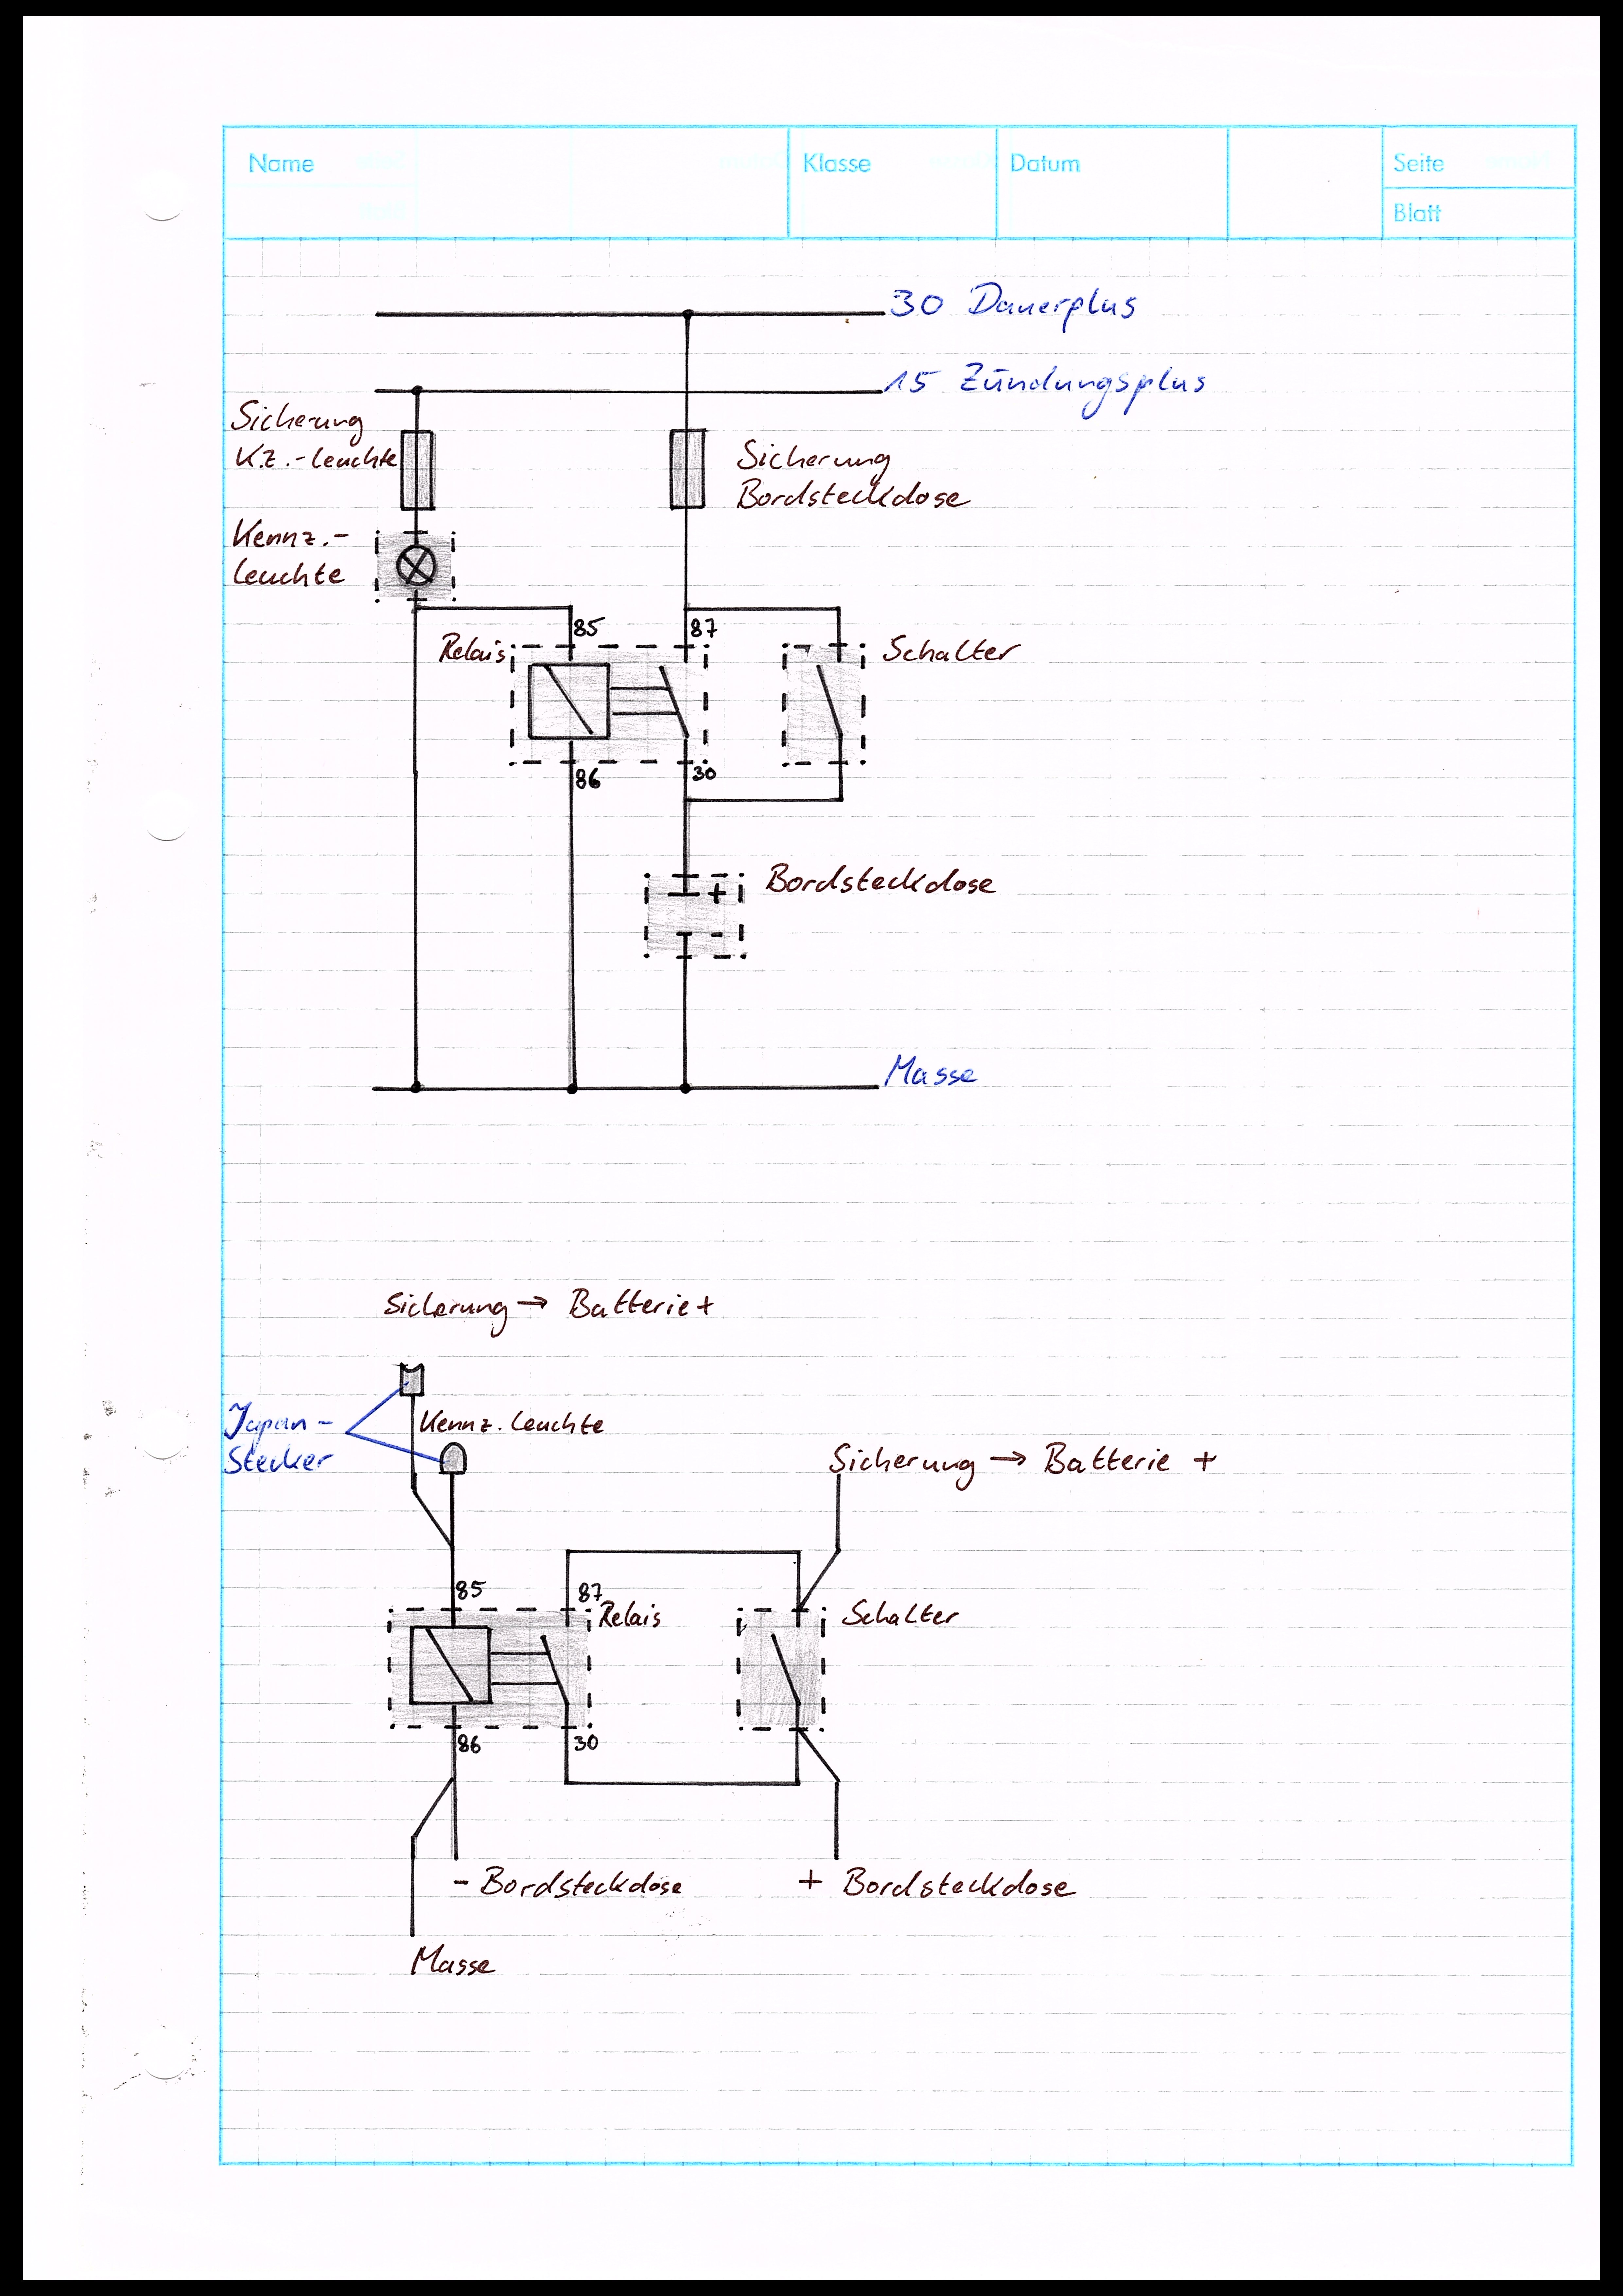 Name Klasse Datum Seite
Blatt
30 Dauerplus
15 Zündungsplus
Sicherung
K.Z.-leuchte
Sicherung
Bordsteckdose
Kennz.-
leuchte
85 87
Relais Schalter
86 30
Bordsteckdose
+
-
Masse
Sicherung → Batterie+
Japan-
Stecker
Kennz. leuchte
Sicherung → Batterie +
85 87
Relais Schalter
86 30
- Bordsteckdose + Bordsteckdose
Masse